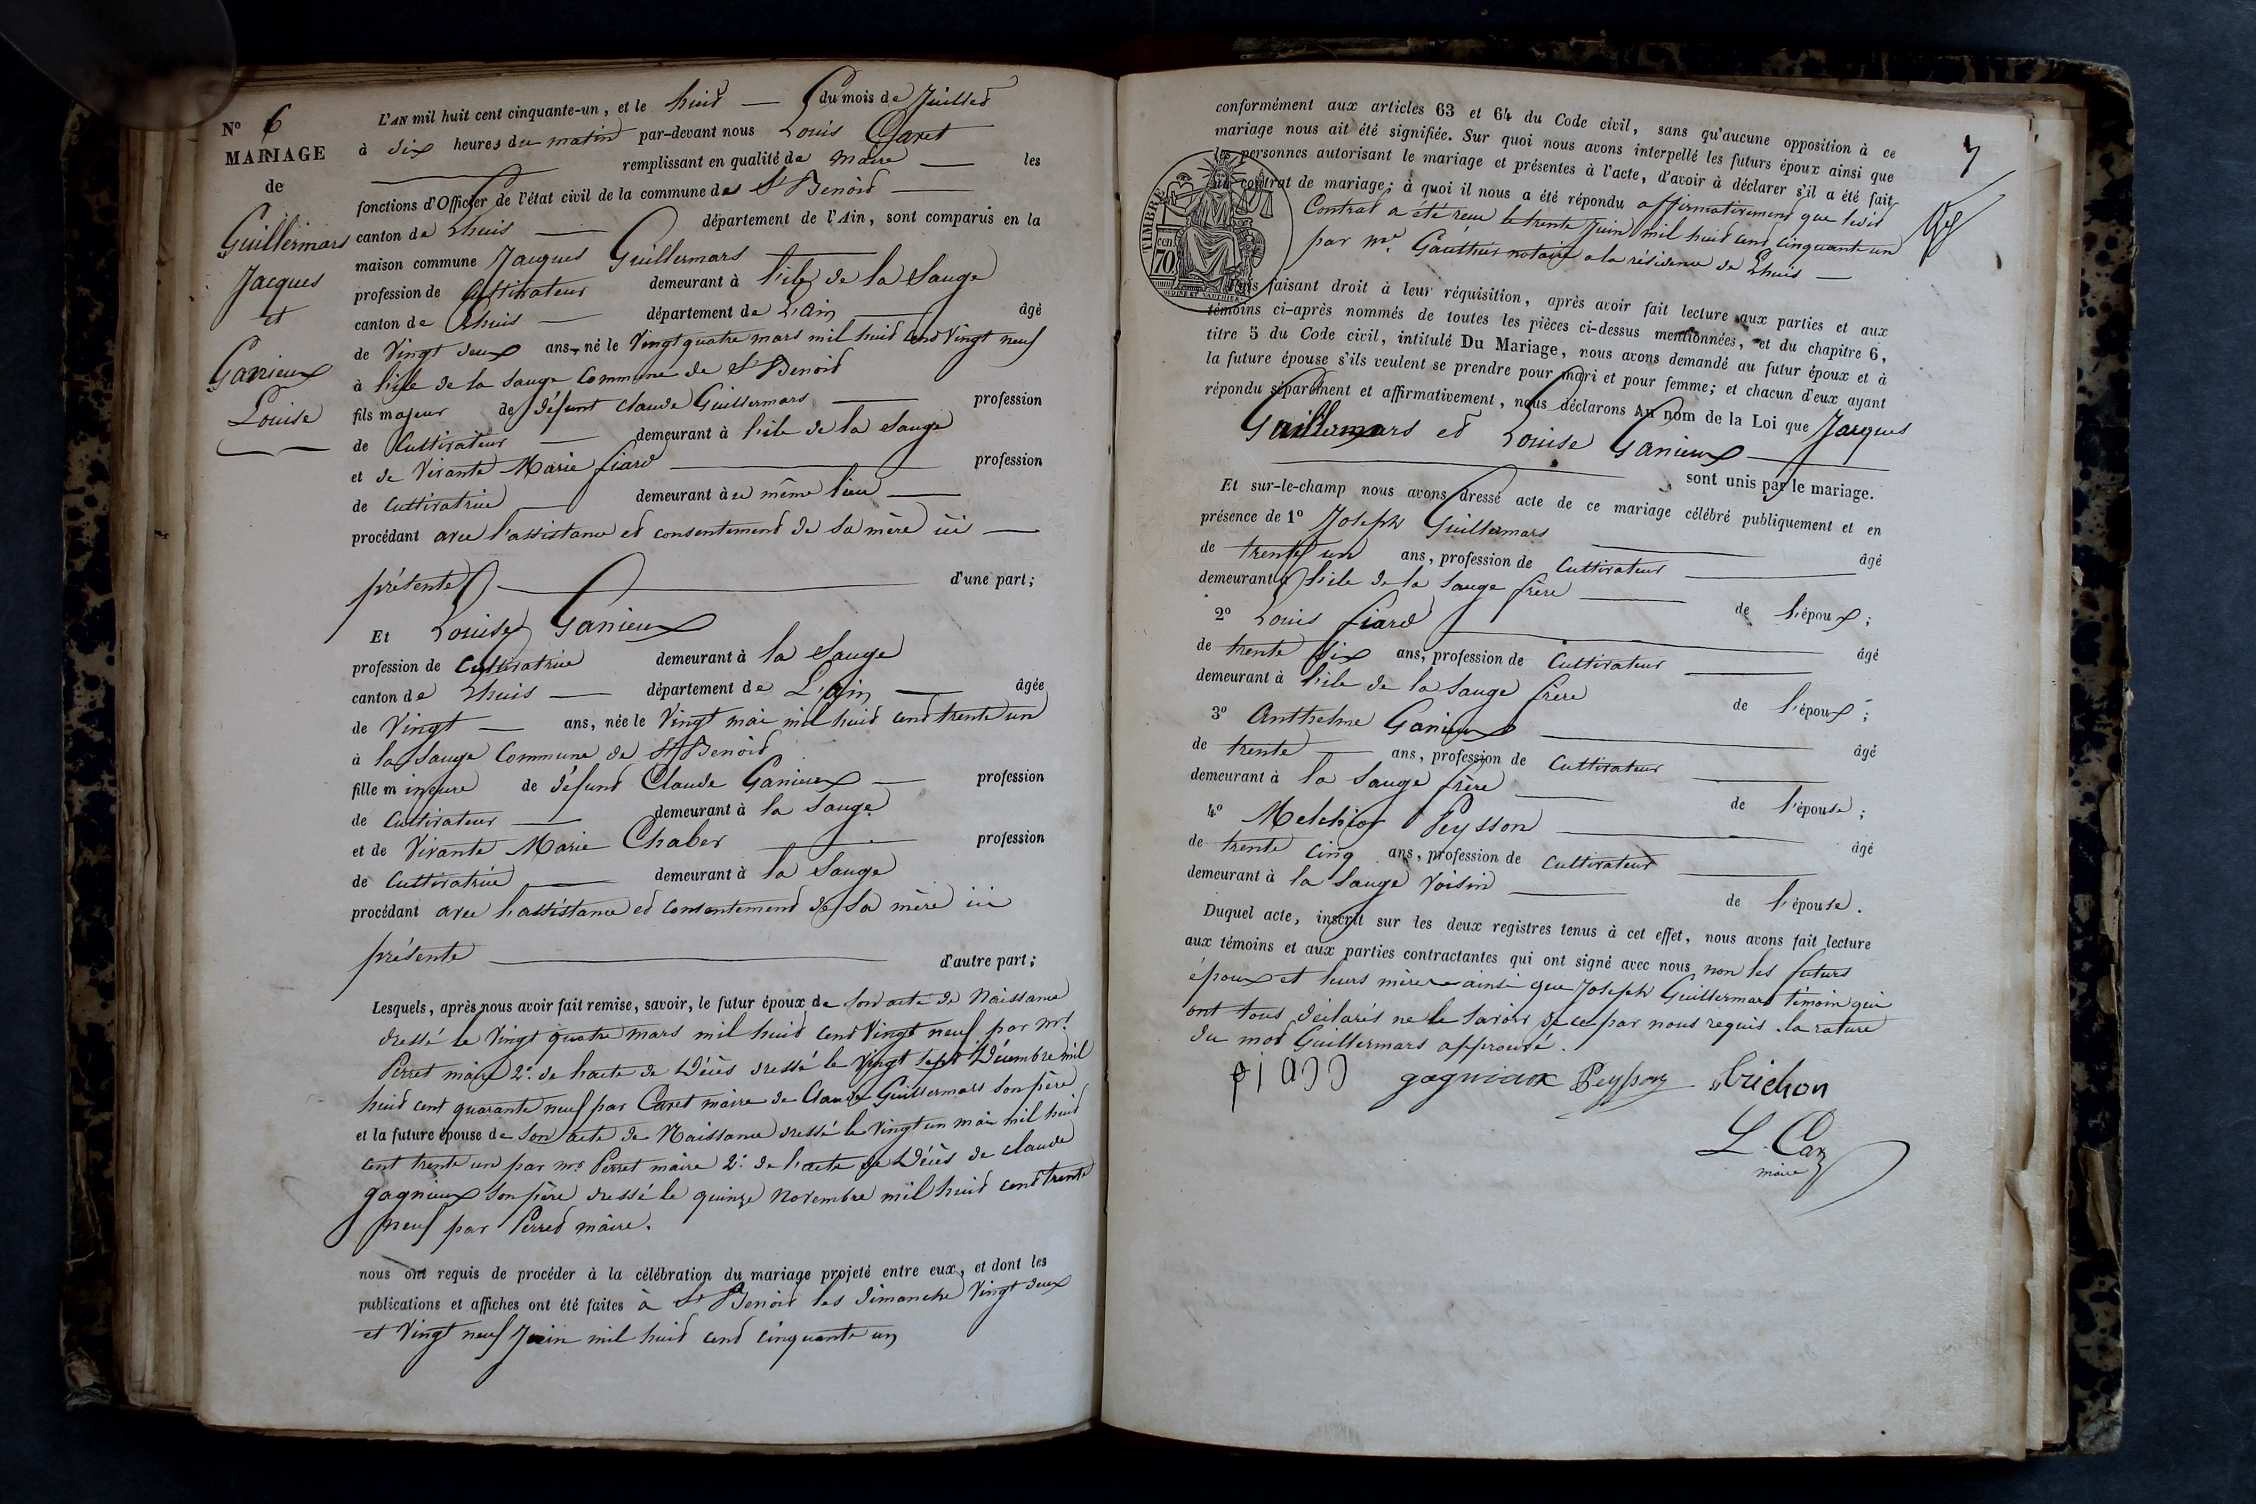 N° 6
MARIAGE
de
Guillermars
Jacques
et
Ganieux
Louise
L'AN mil huit cent cinquante-un, et le huit du mois de Juillet
à dix heures du matin par-devant nous Louis Caret
remplissant en qualité de maire les
fonctions d'Officier de l'état civil de la commune de St Benoit
canton de Lhuis département de l'Ain, sont comparus en la
maison commune Jacques Guillermars
profession de Cultivateur demeurant à l'ile de la Sauge
canton de Lhuis département de L'ain âgé
de Vingt deux ans, né le Vingt quatre mars mil huit cent Vingt neuf
à l'isle de la Sauge Commune de St Benoit
fils majeur de défunt Claude Guillermars profession
de Cultivateur demeurant à l'ile de la Sauge
et de Vivante Marie fiard profession
de Cultivatrice demeurant à ce même lieu
procédant avec l'assistance et consentement de sa mère ici
présente d'une part;
Et Louise Ganieux
profession de Cultivatrice demeurant à la Sauge
canton de Lhuis département de L'ain âgée
de Vingt ans, née le Vingt mai mil huit cent trente un
à la Sauge Commune de St Benoit
fille mineure de défunt Claude Ganieux profession
de Cultivateur demeurant à la Sauge
et de Vivante Marie Chaber profession
de Cultivatrice demeurant à la Sauge
procédant avec l'assistance et consentement de sa mère ici
présente d'autre part;
Lesquels, après nous avoir fait remise, savoir, le futur époux de son acte de Naissance
dressé le Vingt quatre mars mil huit cent Vingt neuf par mr
Perret maire 2° de l'acte de Décès dressé le Vingt sept Décembre mil
huit cent quarante neuf par Caret maire de Claude Guillermars son père
et la future épouse de son acte de Naissance dressé le Vingt un mai mil huit
cent trente un par mr Perret maire 2° de l'acte de Décès de claude
gagnieux son père dressé le quinze Novembre mil huit cent trente
neuf par Perret maire.
nous ont requis de procéder à la célébration du mariage projeté entre eux, et dont les
publications et affiches ont été faites à St Benoit les dimanche Vingt deux
et Vingt neuf Juin mil huit cent cinquante un
7
conformément aux articles 63 et 64 du Code civil, sans qu'aucune opposition à ce
mariage nous ait été signifiée. Sur quoi nous avons interpellé les futurs époux ainsi que
les personnes autorisant le mariage et présentes à l'acte, d'avoir à déclarer s'il a été fait
un contrat de mariage; à quoi il nous a été répondu affirmativement que ledit
Contrat a été reçu le trente Juin mil huit cent cinquante un
par Me Gauthier notaire a la résidence de Lhuis
TIMBRE
cen
70
Puis faisant droit à leur réquisition, après avoir fait lecture aux parties et aux
témoins ci-après nommés de toutes les pièces ci-dessus mentionnées, et du chapitre 6,
titre 5 du Code civil, intitulé Du Mariage, nous avons demandé au futur époux et à
la future épouse s'ils veulent se prendre pour mari et pour femme; et chacun d'eux ayant
répondu séparément et affirmativement, nous déclarons Au nom de la Loi que Jacques
Guillermars et Louise Ganieux
sont unis par le mariage.
Et sur-le-champ nous avons dressé acte de ce mariage célébré publiquement et en
présence de 1° Joseph Guillermars
de trente un ans, profession de Cultivateur âgé
demeurant à l'ile de la Sauge frère de l'époux;
2° Louis fiard
de trente six ans, profession de Cultivateur âgé
demeurant à l'ile de la Sauge frère de l'époux;
3° Anthelme Ganieux
de trente ans, profession de Cultivateur âgé
demeurant à la Sauge frère de l'épouse;
4° Melchior Peysson
de trente cinq ans, profession de Cultivateur âgé
demeurant à la Sauge Voisin de l'épouse.
Duquel acte, inscrit sur les deux registres tenus à cet effet, nous avons fait lecture
aux témoins et aux parties contractantes qui ont signé avec nous non les futurs
époux et leurs mères ainsi que Joseph Guillermars témoin qui
ont tous déclarés ne le savoir de ce par nous requis. la rature
du mot Guillermars approuvé.
gagniaux Peysson trichon
L. Car
maire